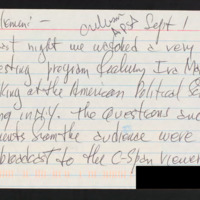 Sept 1
last night we watched a very
esting program featuring Ira M
king at the American Political S
ing in NY. The Questions and
ments from the audience were
broadcast to the C-Span viewer